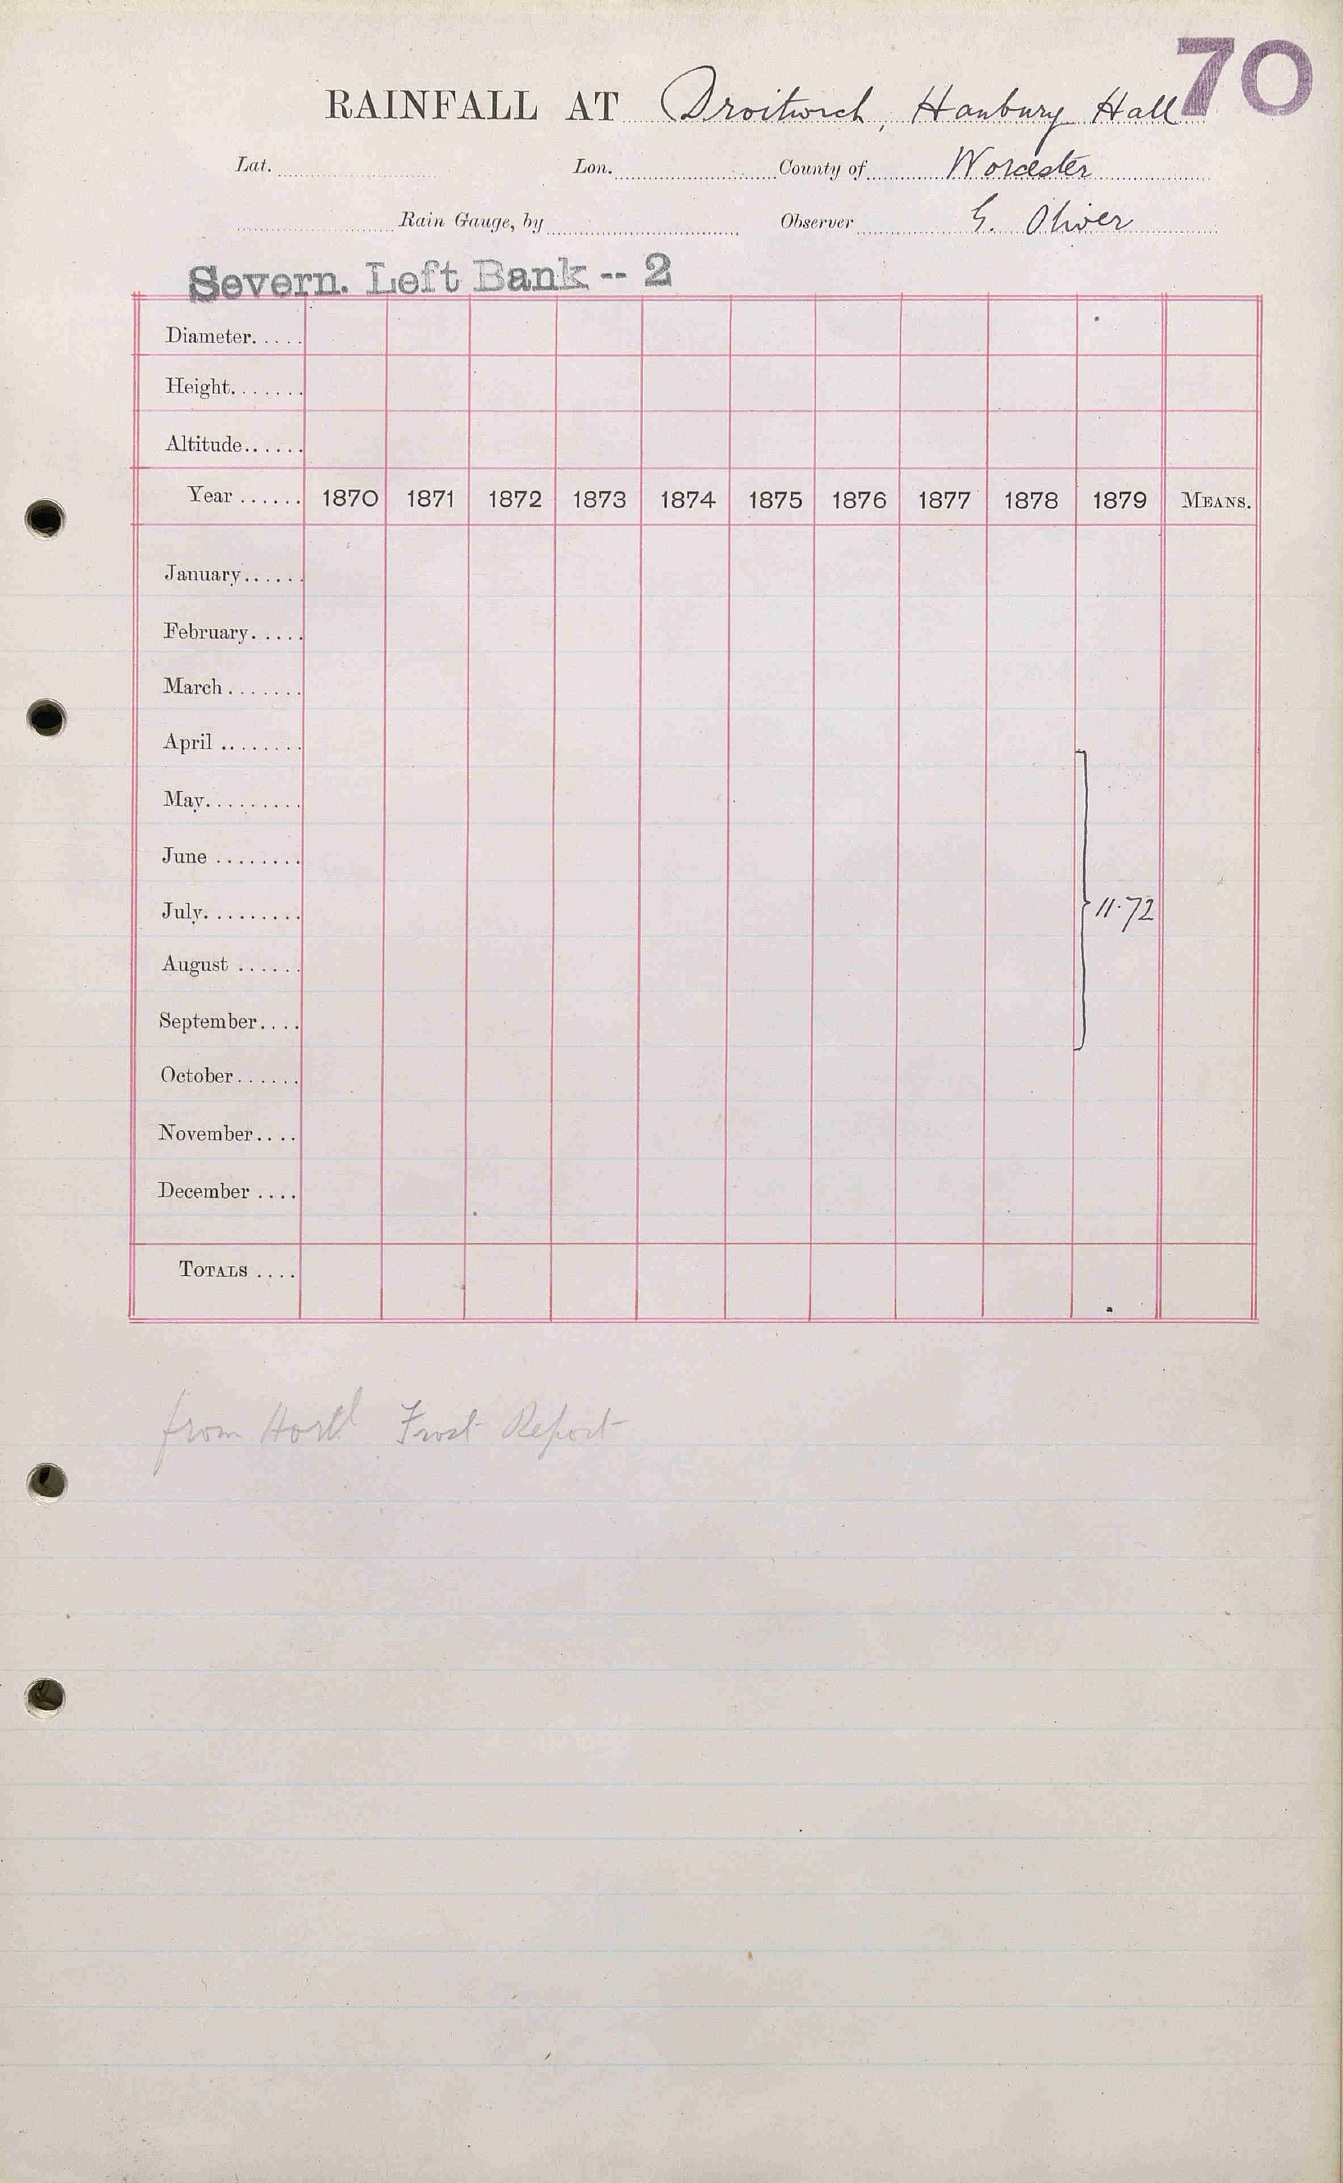 70
RAINFALL AT Droitwich, Hanbury Hall
Lat. Lon. County of Worcester
Rain Gauge, by Observer G. Oliver
Severn. Left Bank -- 2
Diameter.....
Height.......
Altitude......
Year ...... 1870 1871 1872 1873 1874 1875 1876 1877 1878 1879 MEANS.
January......
February.....
March .......
April ........
May.........
June ........
July......... 11.72
August ......
September....
October......
November....
December ....
TOTALS ....
from Hortl Frost Report